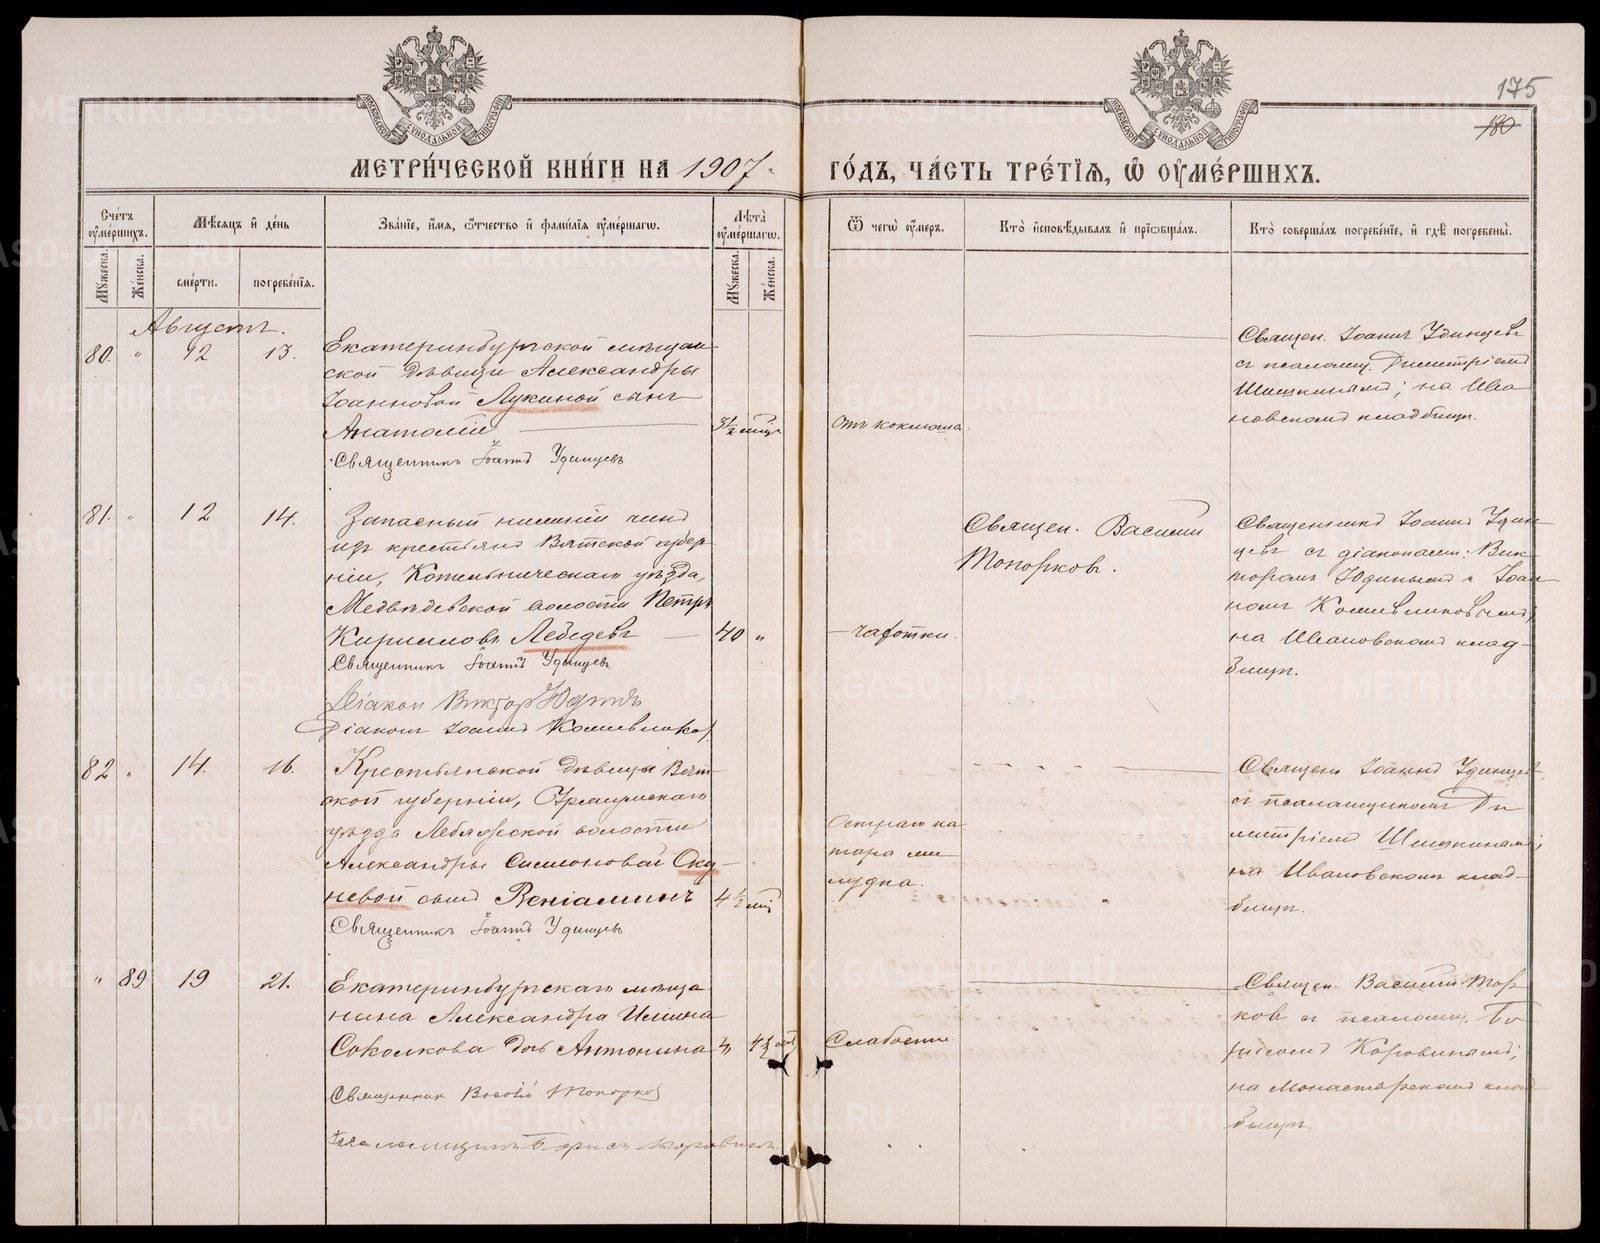 175
180
МЕТРИ́ЧЕСКОЙ КНИ́ГИ НА 1907 ГО́ДЪ, ЧА́СТЬ ТРЕ́ТІѦ, Ѡ҆ ОУ҆МЕ́РШИХЪ.
Сче́тъ оу҆ме́ршихъ.
Мѣ́сяцъ и҆ де́нь
Зва́нїе, и҆́мя, ѻ҆́тчество и҆ фамѵ́лїя оу҆ме́ршагѡ.
Лѣта̀ оу҆ме́ршагѡ.
Ѿ чегѡ̀ оу҆́меръ.
Кто̀ и҆сповѣ́дывалъ и҆ прїѡбща́лъ.
Кто̀ соверша́лъ погребе́нїе, и҆ гдѣ̀ погребены̀.
Мꙋ́жеска.
Же́нска.
сме́рти.
погребе́нїя.
Мꙋ́жеска.
Же́нска.
Августъ.
80. " 12 13.
Екатеринбургской мѣщан
ской дѣвицы Александры
Іоанновой Лукиной сынъ
Анатолій 3½ мѣц
Священникъ Іоаннъ Удинцевъ
Отъ коклюша.
Священ. Іоаннъ Удинцевъ
съ псаломщ. Димитріемъ
Шишкинымъ; на Ива
новскомъ кладбищѣ.
81. " 12 14.
Запасный нижній чинъ
изъ крестьянъ Вятской губер
ніи, Котельническаго уѣзда,
Медвѣдевской волости Петръ
Кирилловъ Лебедевъ 40 "
Священникъ Іоаннъ Удинцевъ
Діакон Виктор Юдинъ
Діаконъ Іоаннъ
– чахотки.
Священ. Василій
Топорковъ.
Священникъ Іоаннъ Удин
цевъ съ діаконами: Вик
торомъ Юдинымъ и Іоан
номъ
на Ивановскомъ клад-
бищѣ.
82 " 14. 16.
Крестьянской дѣвицы Вят-
ской губерніи, Уржумскаго
уѣзда Лебяжской волости
Александры Симоновой Оку-
невой сынъ Веніаминъ 4½ мѣц
Священникъ Іоаннъ Удинцевъ
Острый ка
тарръ же
лудка.
Священ Іоаннъ Удинцевъ,
съ псаломщикомъ Ди
митріемъ Шишкинымъ;
на Ивановскомъ клад-
бищѣ.
" 89 19 21.
Екатеринбургскаго мѣща
нина Александра
Соколкова дочь Антонина "
Священник Василій Топорков
Псаломщикъ Борисъ Коровинъ
Слабости
Священ. Василій Топор
ковъ съ псаломщ. Бо
рисомъ Коровинымъ;
на Монастырскомъ клад
бищѣ.